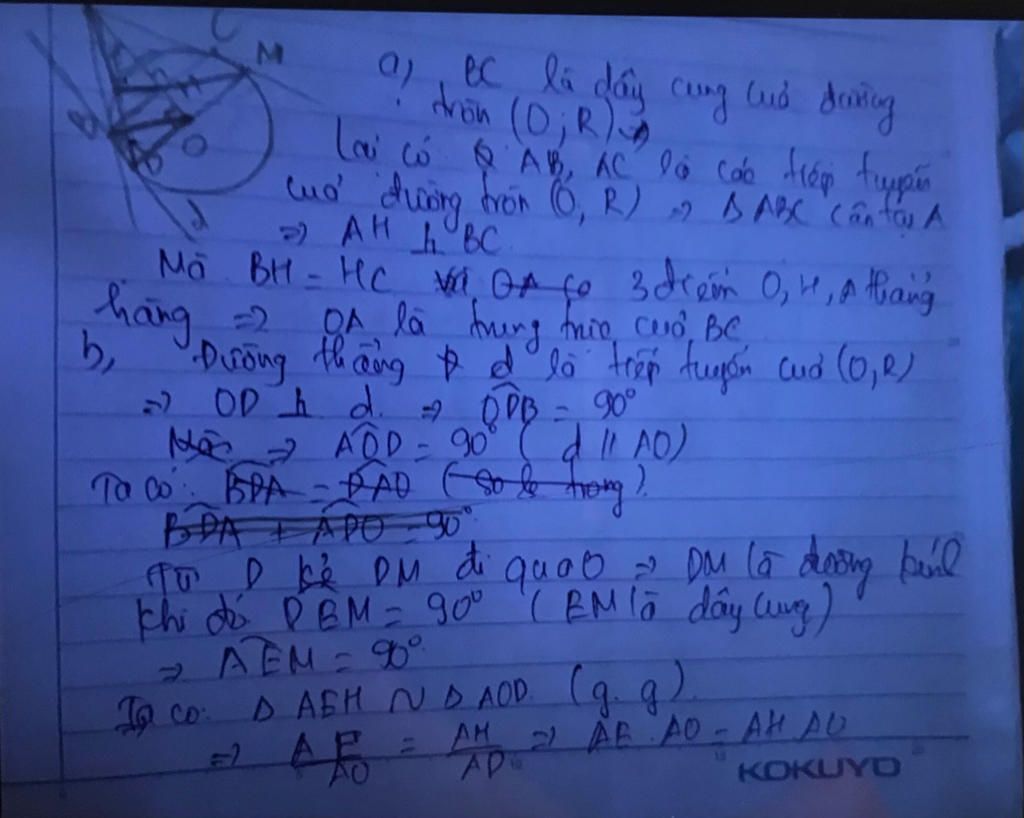 C
M
O
d
a) BC là dây cung của đường
tròn (O; R)
Lại có AB, AC là các tiếp tuyến
của đường tròn (O, R) => Δ ABC cân tại A
=> AH ⊥ BC
Mà BH = HC 3 điểm O, H, A thẳng
hàng => OA là trung trực của BC
b, Đường thẳng d là tiếp tuyến của (O, R)
=> OD ⊥ d. => ODB = 90°
=> AOD = 90° ( d // AO)
Ta có: BDA = DAO (so le trong)
BDA + ADO = 90°
Từ D kẻ DM đi qua O => DM là đường kính
Khi đó DEM = 90° (EM là dây cung)
=> AEM = 90°
Ta có: Δ AEH ~ Δ AOD. (g.g)
=> AE/AO = AH/AD => AE . AD = AH . AO
KOKUYO